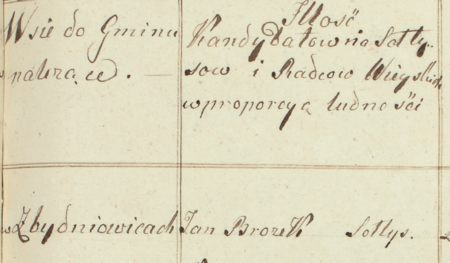 Wsie do Gminu
nalezące. —
Illość
Kandydatow na Sołty-
sow i Radcow Wieyskich
w proporcyą ludnośći
w Zbydniowicach Jan Brozek Sołtys.